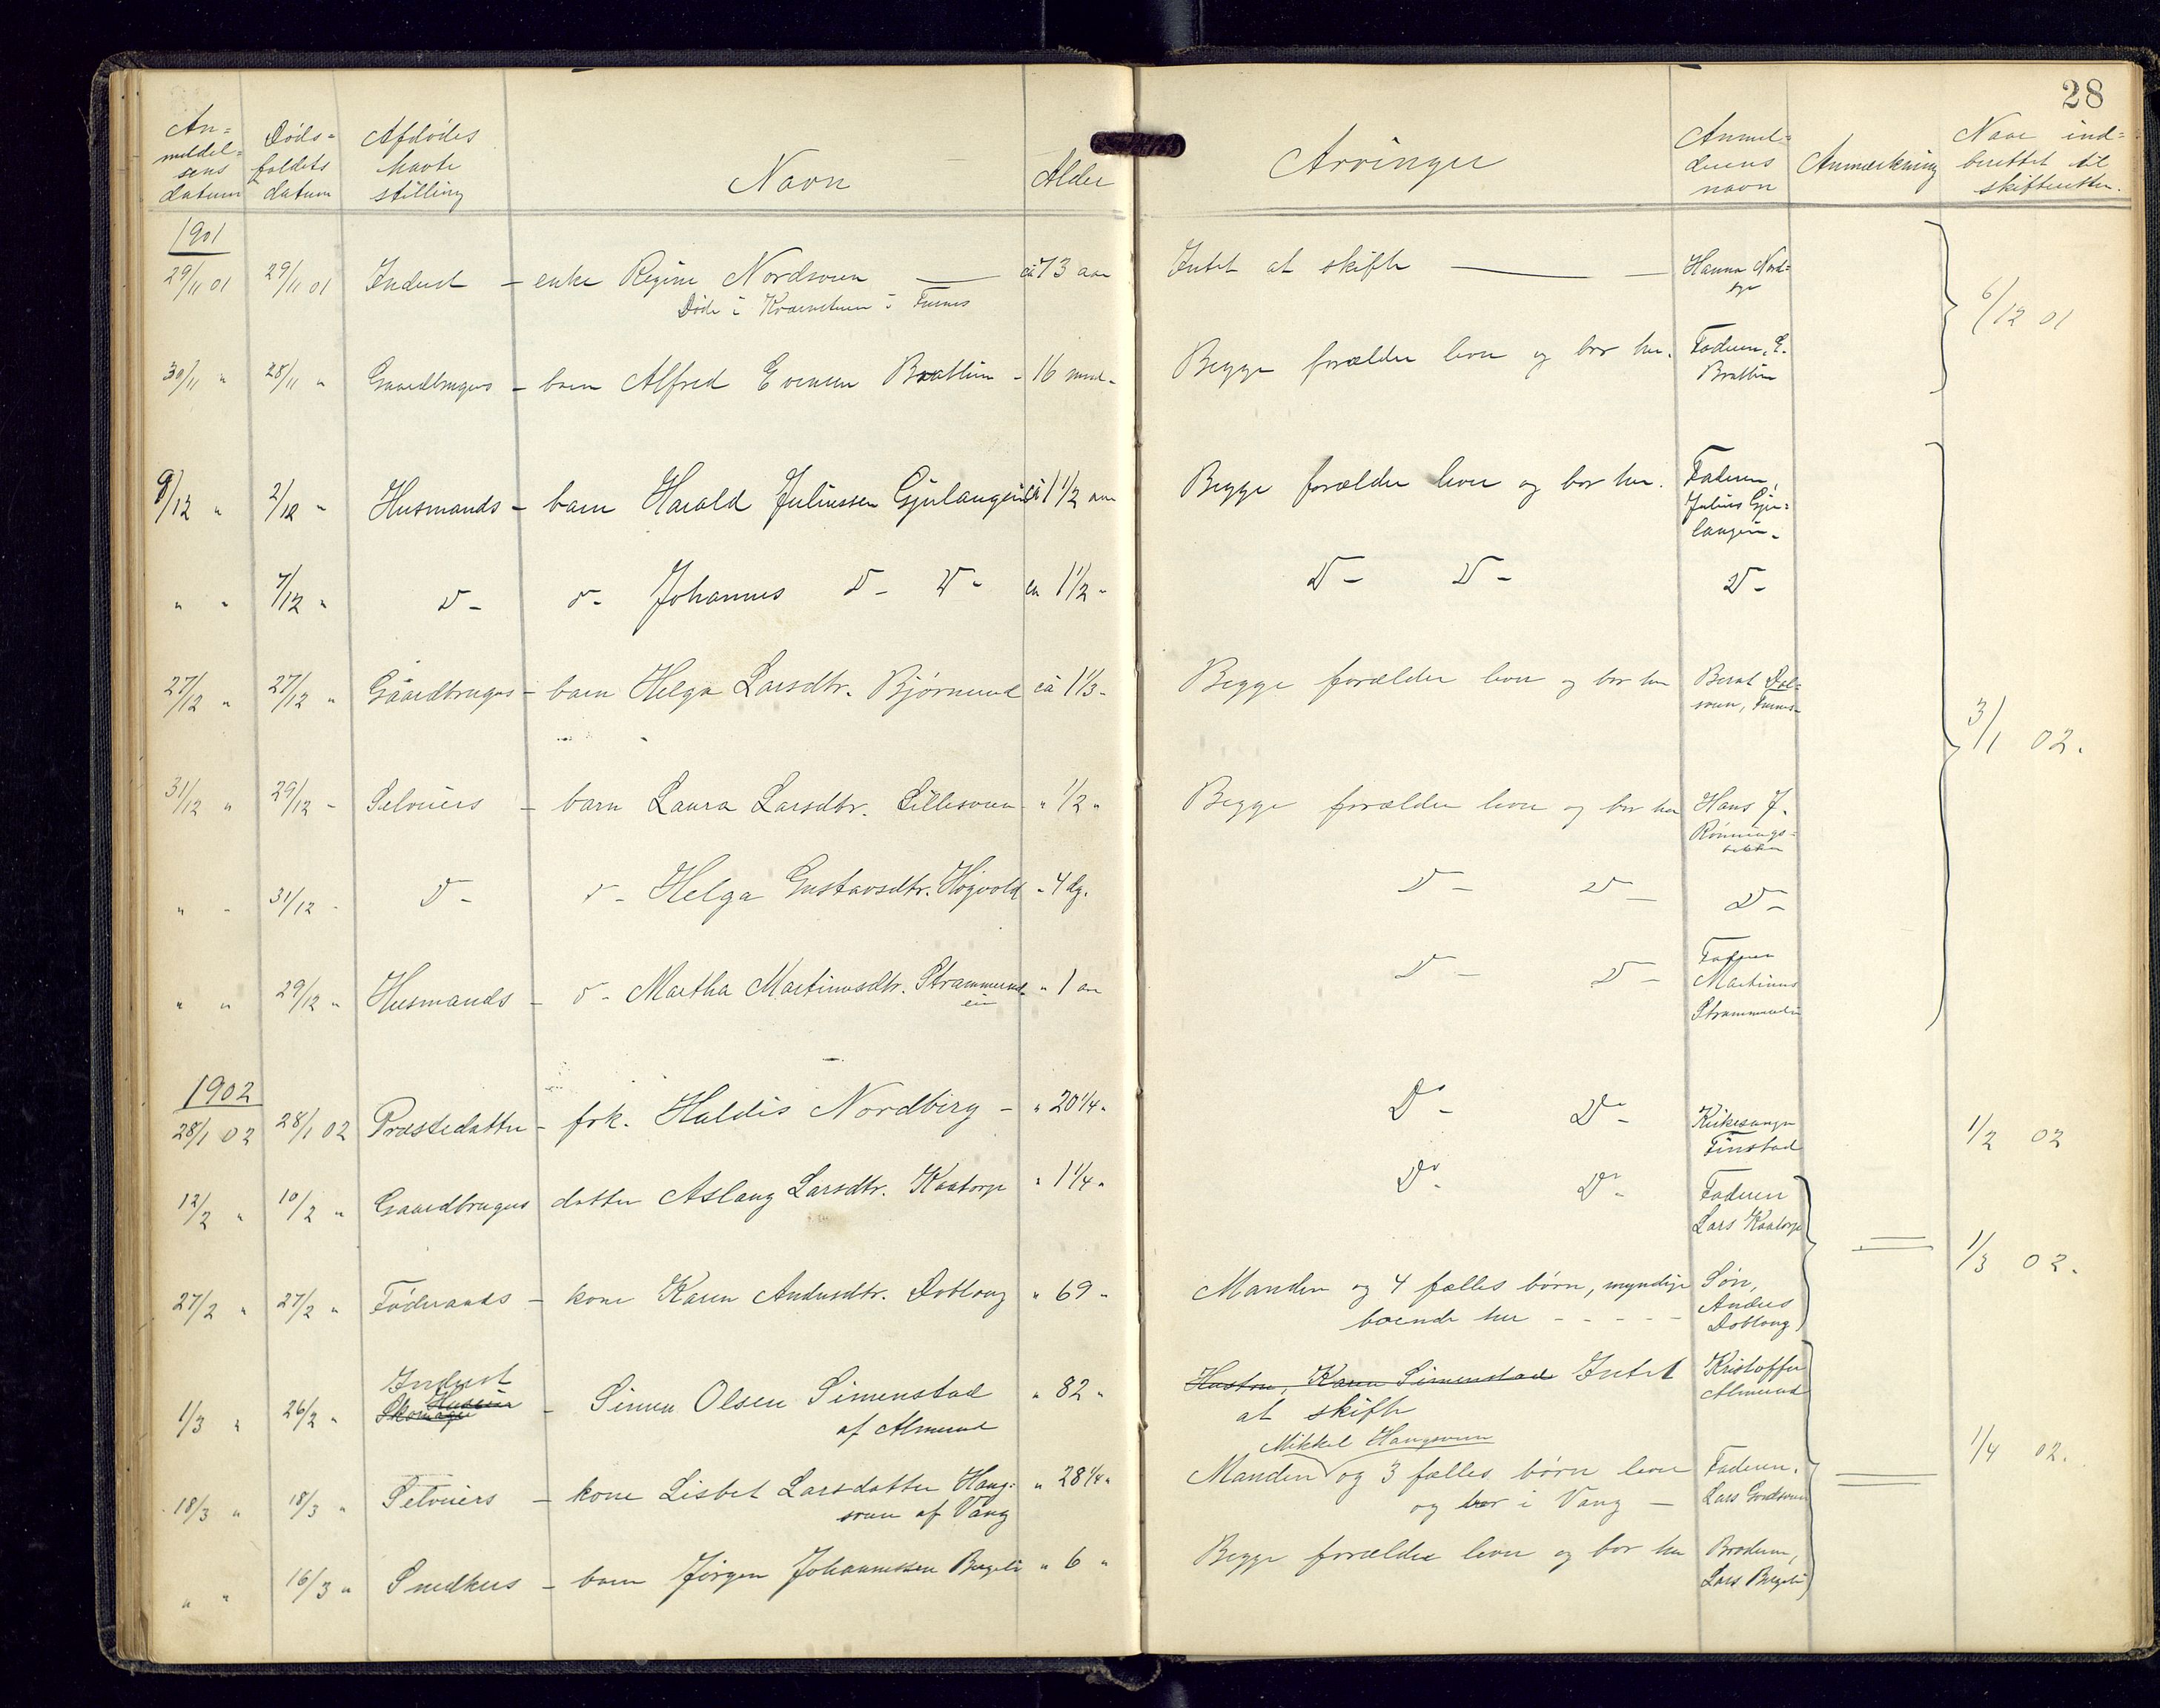 28
An=
meldel=
sens
datum
Døds=
faldets
datum
Afdødes
havte
stilling
Navn
Alder
Arvinger
Anmel=
derens
navn
Anmærkning
Naar ind=
berettet til
skifteretten.
1901
29/11 01 29/11 01 Inderst - enke Regine Nordsveen ca 73 aar Intet at skifte Hanna Nord=
Døde i i Furnes
6/12 01
30/11 " 28/11 " Gaardbrugers - barn Alfred Evensen Braathen - 16 mnd- Begge forældre lever og bor her. Faderen, E.
Braathen
9/12 " 2/12 " Husmands - barn Harald Juliussen Gjulangen ca 1 1/2 aar Begge forældre lever og bor her. Faderen,
Julius Gju=
langen.
" " 7/12 " D- D- Johannes D- D- ca 1 1/2 " D- D- D-
27/12 " 27/12 " Gaardbrugers - barn Helga Larsdtr. Bjørnerud ca 1 1/3 - Begge forældre lever og bor her Bernt Dal=
sveen, Furnes
3/1 02.
31/12 " 29/12 - Seleiers - barn Laura Larsdtr. Lillesveen " 1/2 " Begge forældre lever og bor her Hans J.
Rønnings=
bakken
" - 31/12 - D- D- Helga Gustavsdtr. Høgvold " 4 dg. D- D- D-
" " 29/12 " Husmands - D- Martha Martinusdtr. Strammerud- " 1 aar D- D- Faderen
eie
Martinus
Strammerudeie
1902
28/1 02 28/1 02 Præstedatter - frk. Haldis Nordberg - " 20 1/4 " Do- Do- Kirkesanger
Finstad
1/2 02
12/2 " 10/2 " Gaardbrugers datter Aslaug Larsdtr. Kaatorp " 1 1/4 " Do- Do- Faderen
Lars Kaatorp
1/3 02.
27/2 " 27/2 " Føderaads - kone Karen Andersdtr. Doblaug " 69 " Manden og 4 fælles børn, myndige Søn,
boende her - - - - - Anders
Doblaug
Inderst
1/3 " 26/2 " Skomager - Simen Olsen Simenstad " 82 " Hustru, Karen Simenstad Intet Kristoffer
af Almerud at skifte Almerud
Mikkel Haugsveen
18/3 " 18/3 " Seleiers - kone Lisbet Larsdatter Haug= " 28 1/4 " Manden og 3 fælles børn lever Faderen.
sveen af Vang og bor i Vang - Lars
1/4 02.
" " 16/3 " Snedkers - barn Jørgen Johannessen Bergeli " 6 " Begge forældre lever og bor her Broderen,
Lars Bergeli